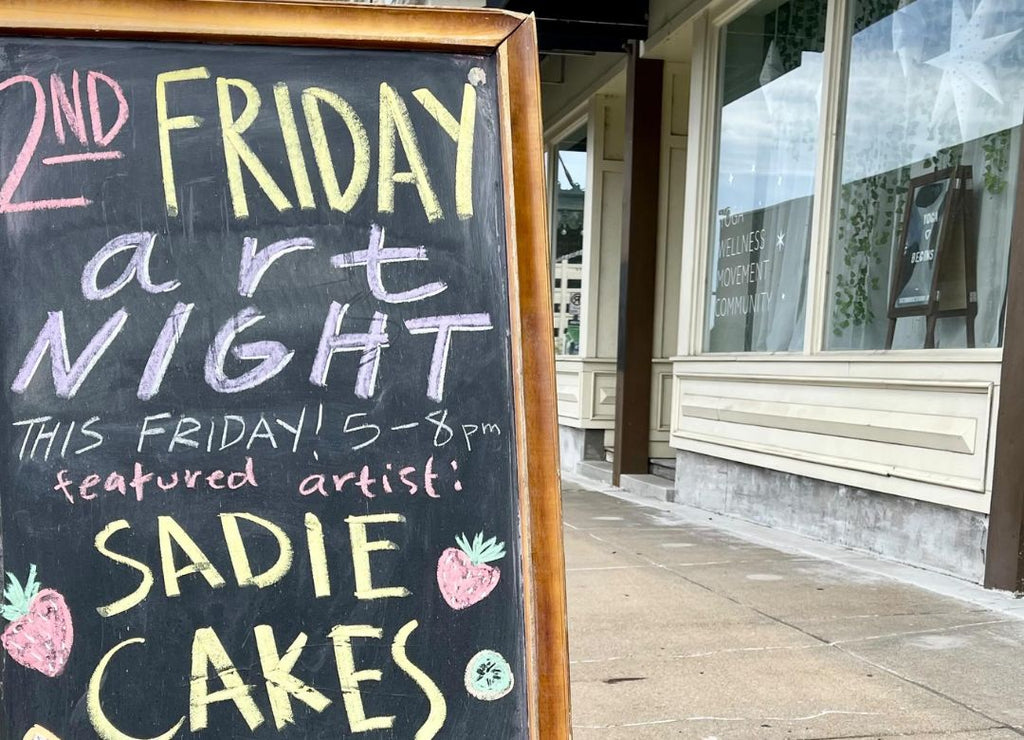 2ND FRIDAY
art
NIGHT
THIS FRIDAY! 5-8pm
featured artist:
SADIE
CAKES
YOGA
WELLNESS
MOVEMENT
COMMUNITY
YOGA
BEGINS